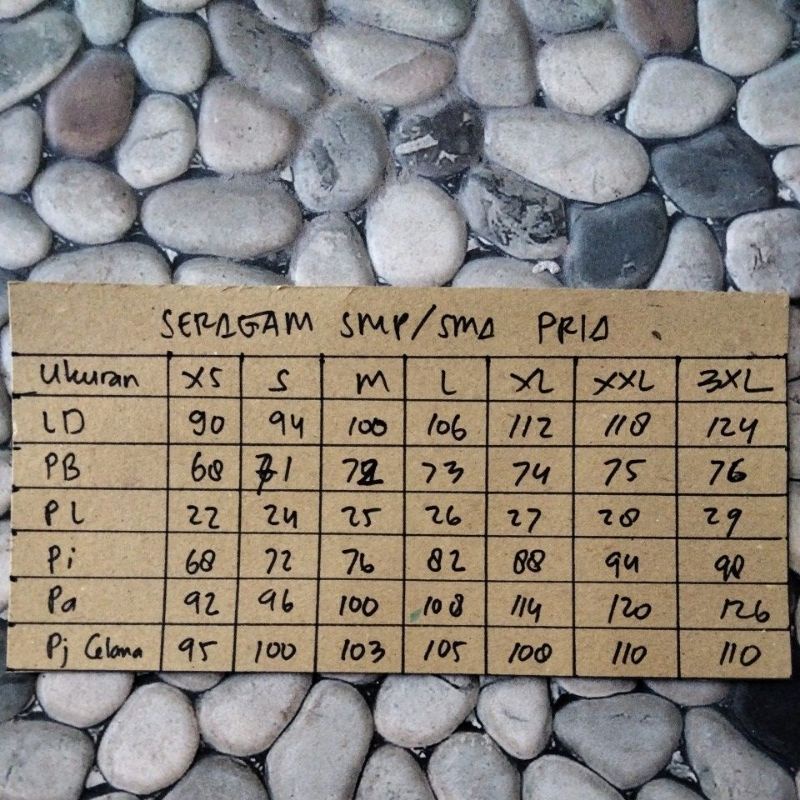 SERAGAM SMP/SMA PRIA
Ukuran XS S M L XL XXL 3XL
LD 90 94 100 106 112 118 124
PB 68 71 72 73 74 75 76
PL 22 24 25 26 27 28 29
Pi 68 72 76 82 88 94 98
Pa 92 96 100 108 114 120 126
Pj Celana 95 100 103 105 108 110 110